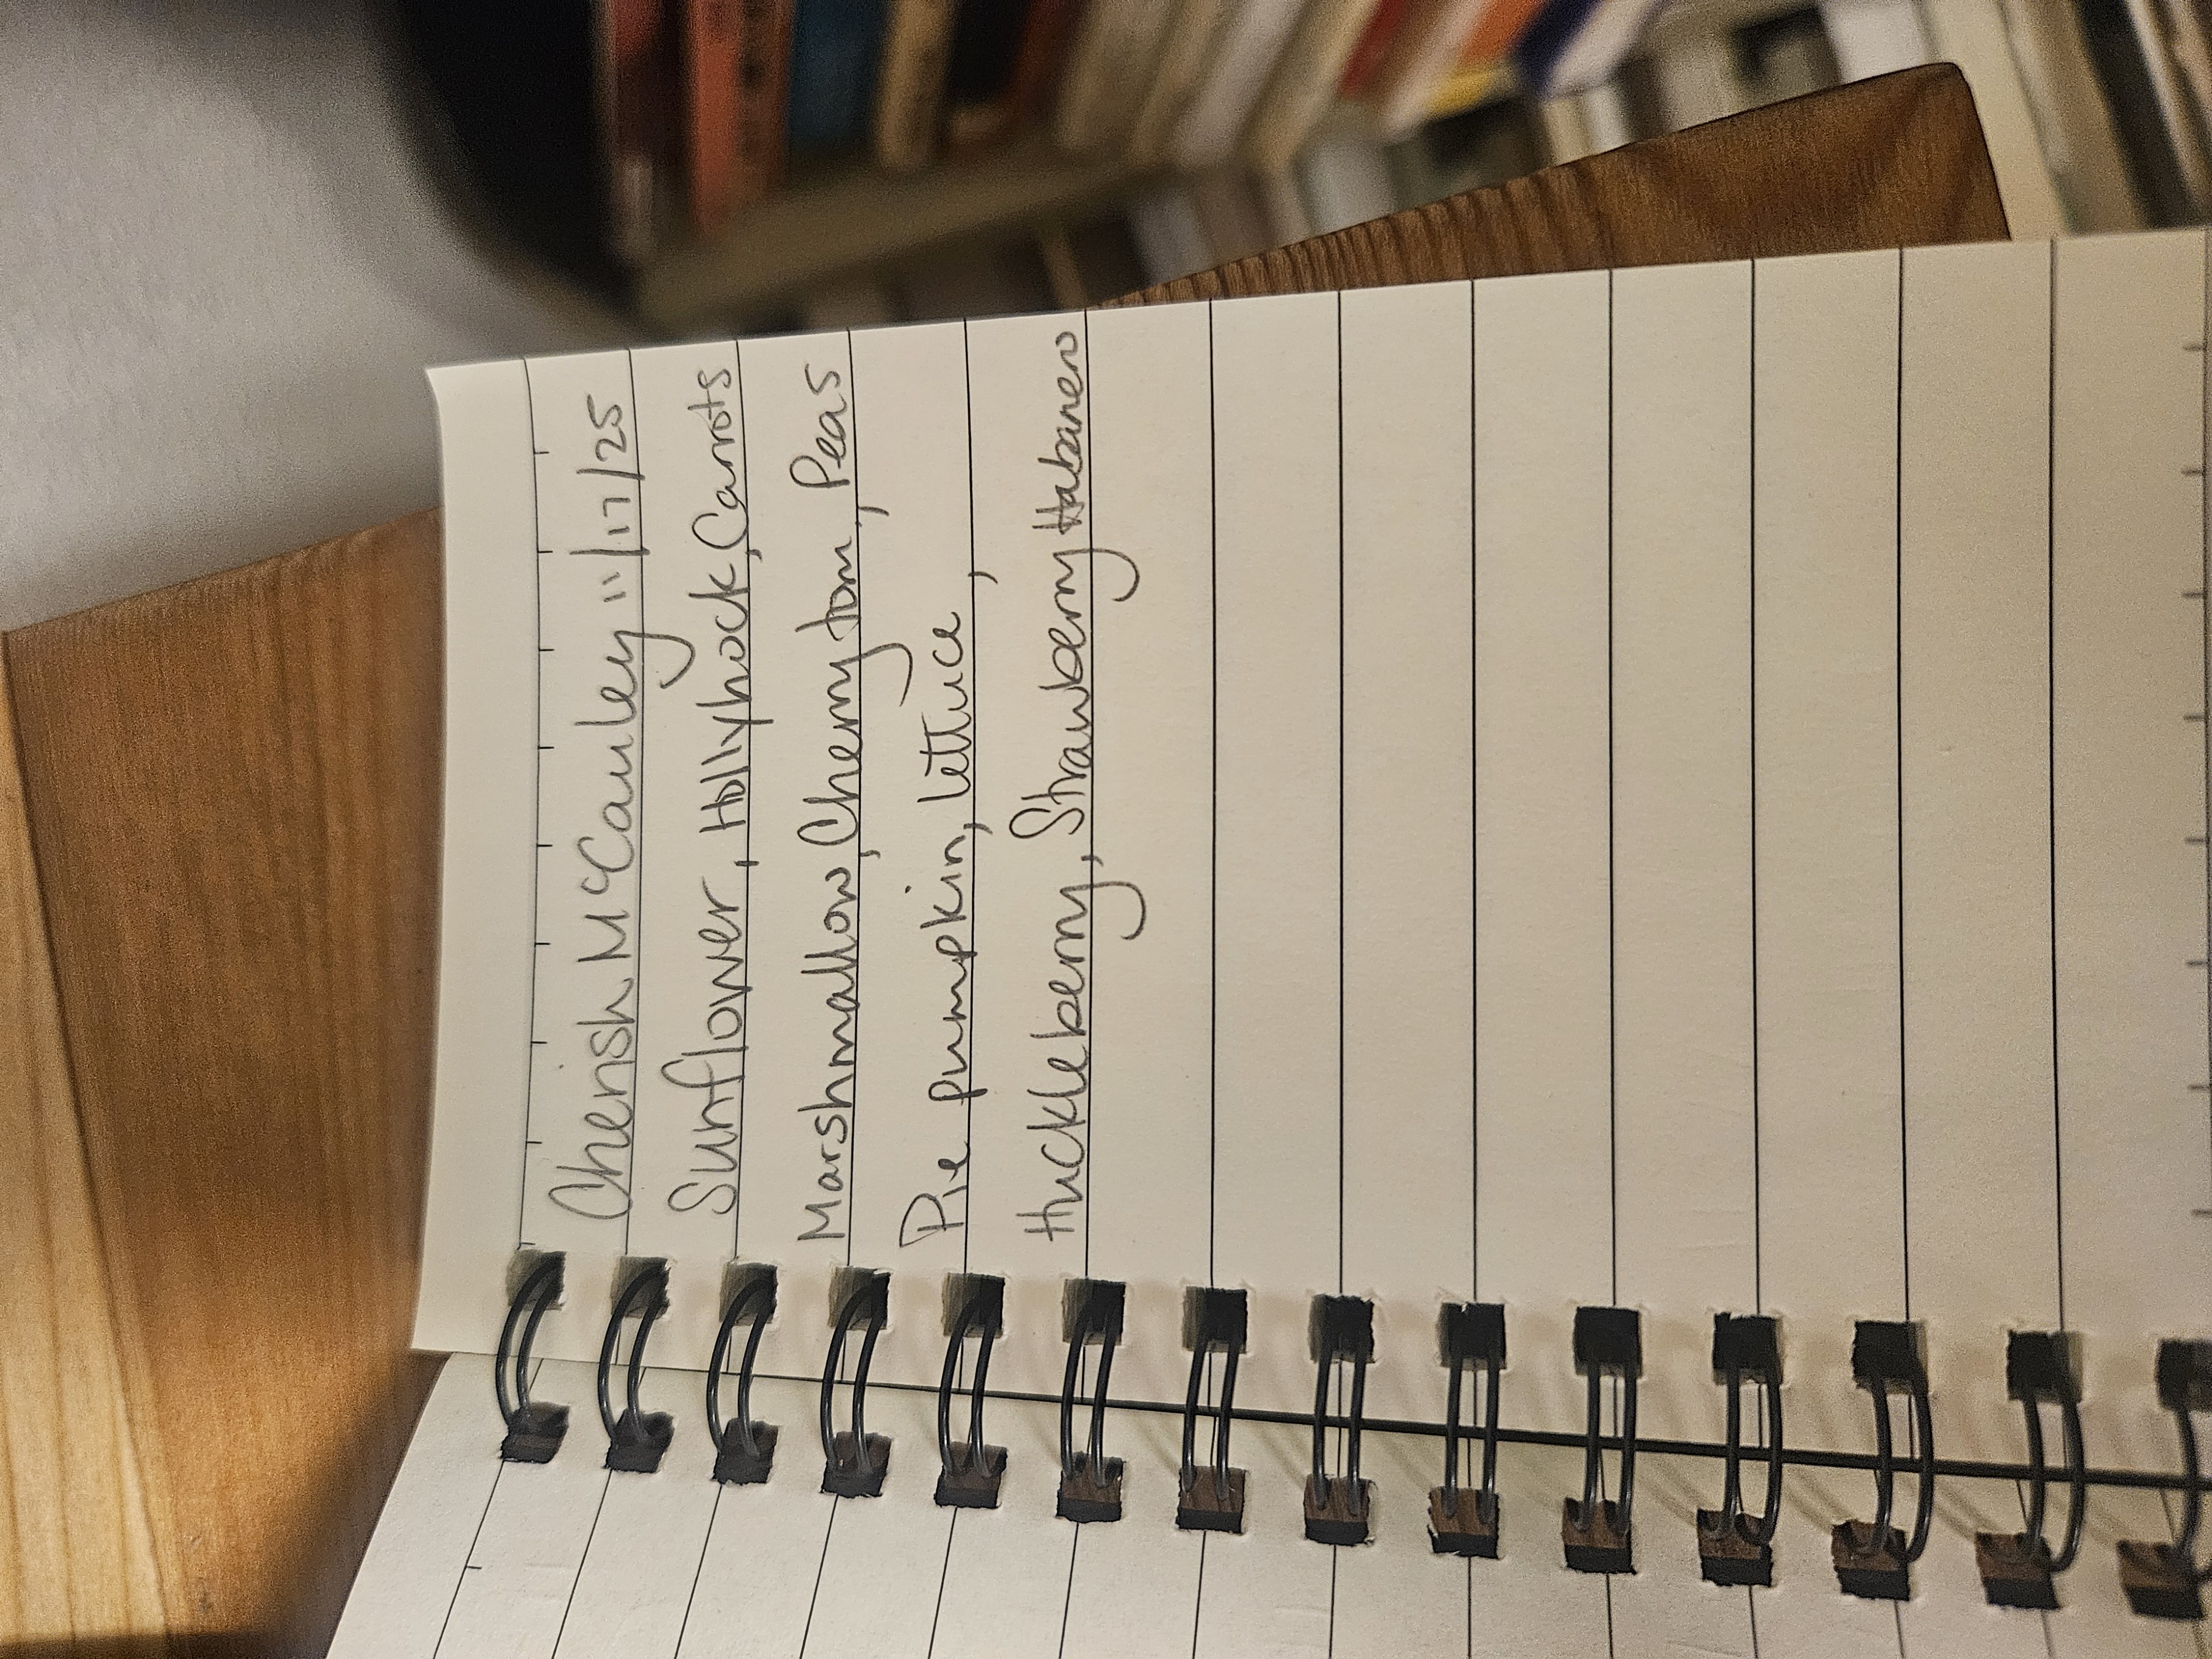 Cherish McCauley 11/17/25
Sunflower, Hollyhock, Carrots
Marshmallow, Cherry tom, Peas
Pie pumpkin, lettuce ,
Huckleberry, Strawberry Habanero